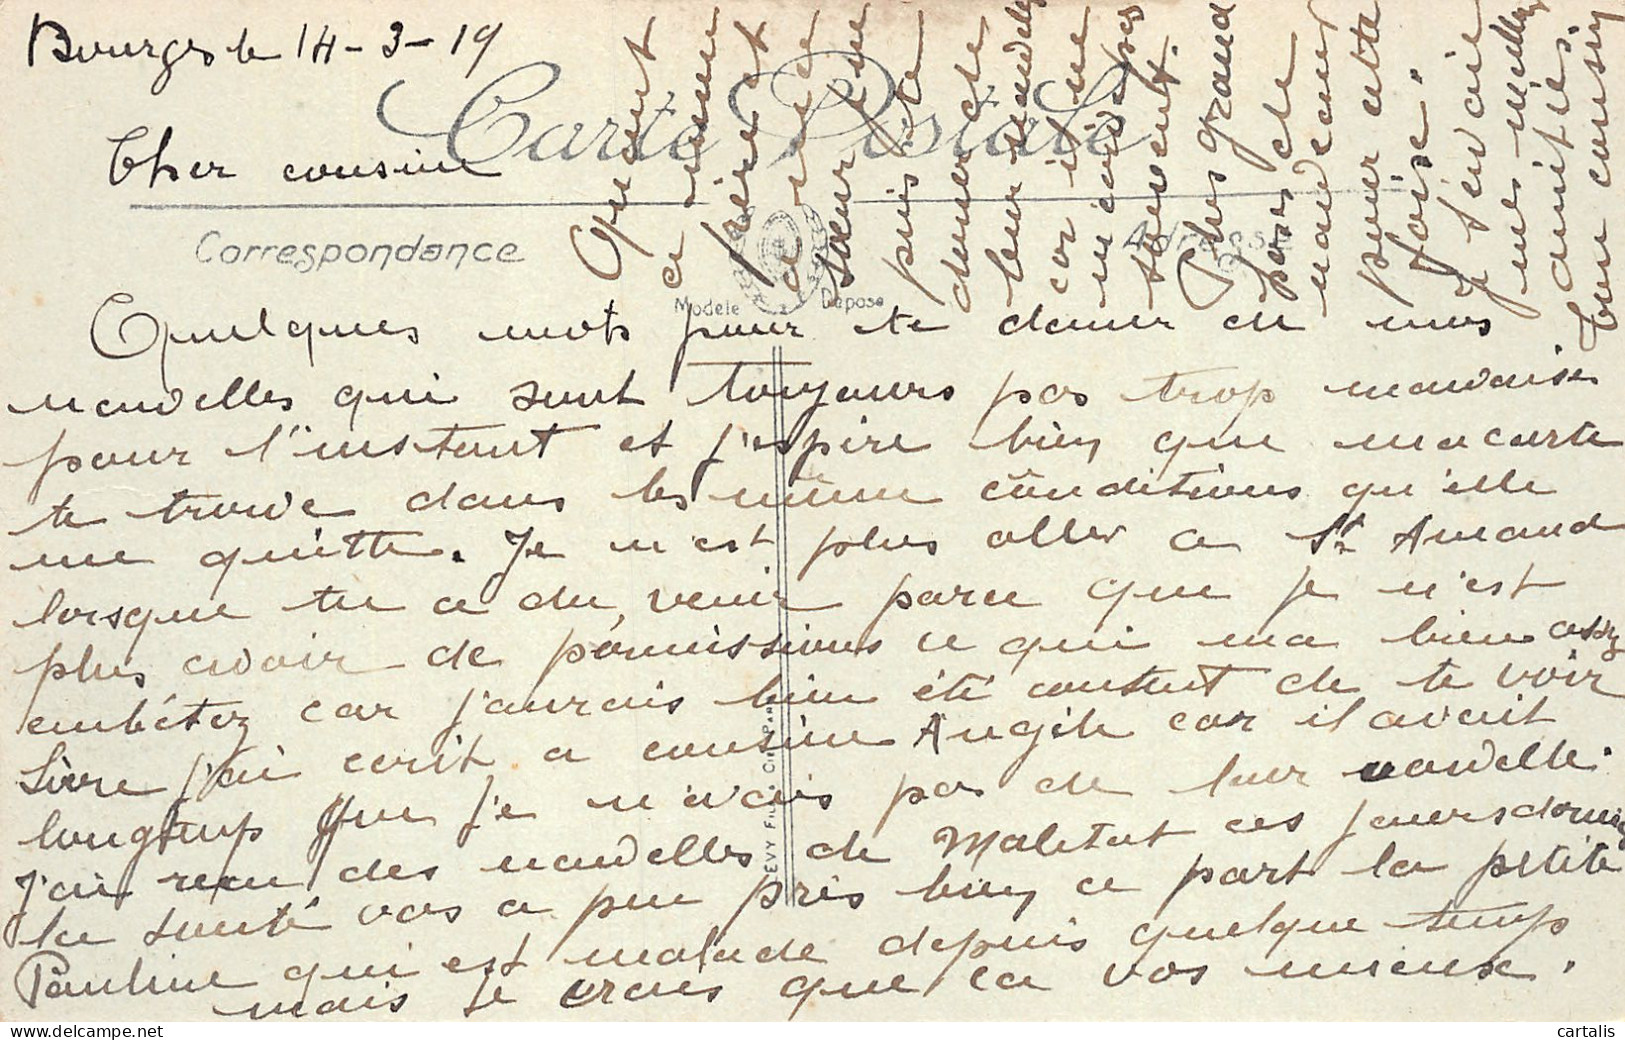 Bourges le 14-3-19
Carte Postale
Cher cousin
Correspondance
Adresse
Modèle Déposé
Quelques mots pour te donner de mes
nouvelles qui sont toujours pas trop mauvaises
pour l'instant et j'espère bien que ma carte
te trouve dans les même conditions qu'elle
me quitte. Je n'est plus aller a St Amand
lorsque tu a du venir parce que je n'est
plus avoir de permissions ce qui ma bien assez
embêtez car j'aurais bien été content de te voir
Livre j'ai ecrit a cousin Angèle car il avait
longtemp que je n'avais pas de leur nouvelle.
J'ai reçu des nouvelles de ces jours
la santé vas a peu près bien a part la petite
Pauline qui est malade depuis quelque temps
mais je crois que ca vas mieux.
Quant
a mame
père et
a
soeur
puis te
donner de
leur nouvelle
car il ne
m'écris pas
souvent.
Plus grand
chose de
nouveaux
pour cette
fois.
J'envoie
mes meilleur
amitiés.
Ton cousin
LEVY FILS & Cie PARIS
cartalis